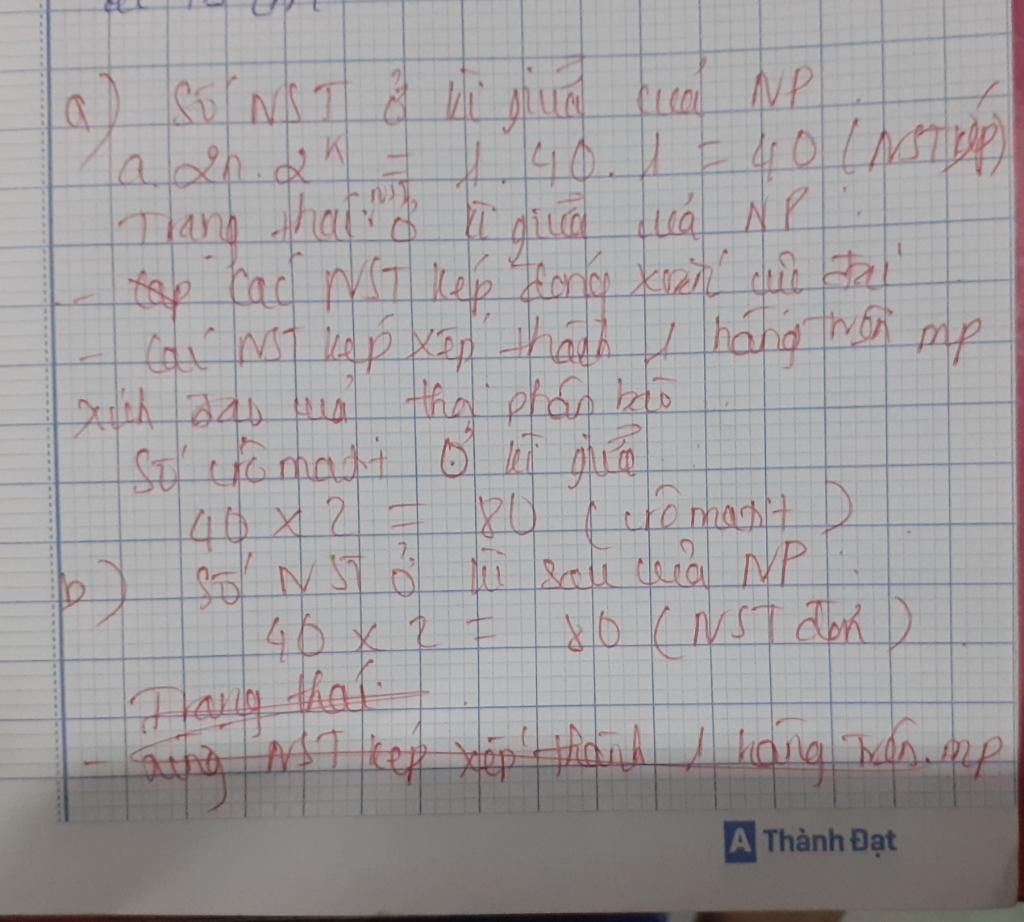 a) Số NST ở kì giữa của NP
a. 2n. 2^k = 1. 40. 1 = 40 (NST kép)
Trạng thái NST ở kì giữa quá NP :
- các NST kép đóng xoắn cực đại
- Các NST kép xếp thành 1 hàng trên mp
xích đạo của thoi phân bào
Số crômatit ở kì giữa
40 x 2 = 80 (crômatit)
b) Số NST ở kì sau của NP :
40 x 2 = 80 (NST đơn)
Trạng thái.
- NST kép xếp thành 1 hàng trên. mp
A Thành Đạt